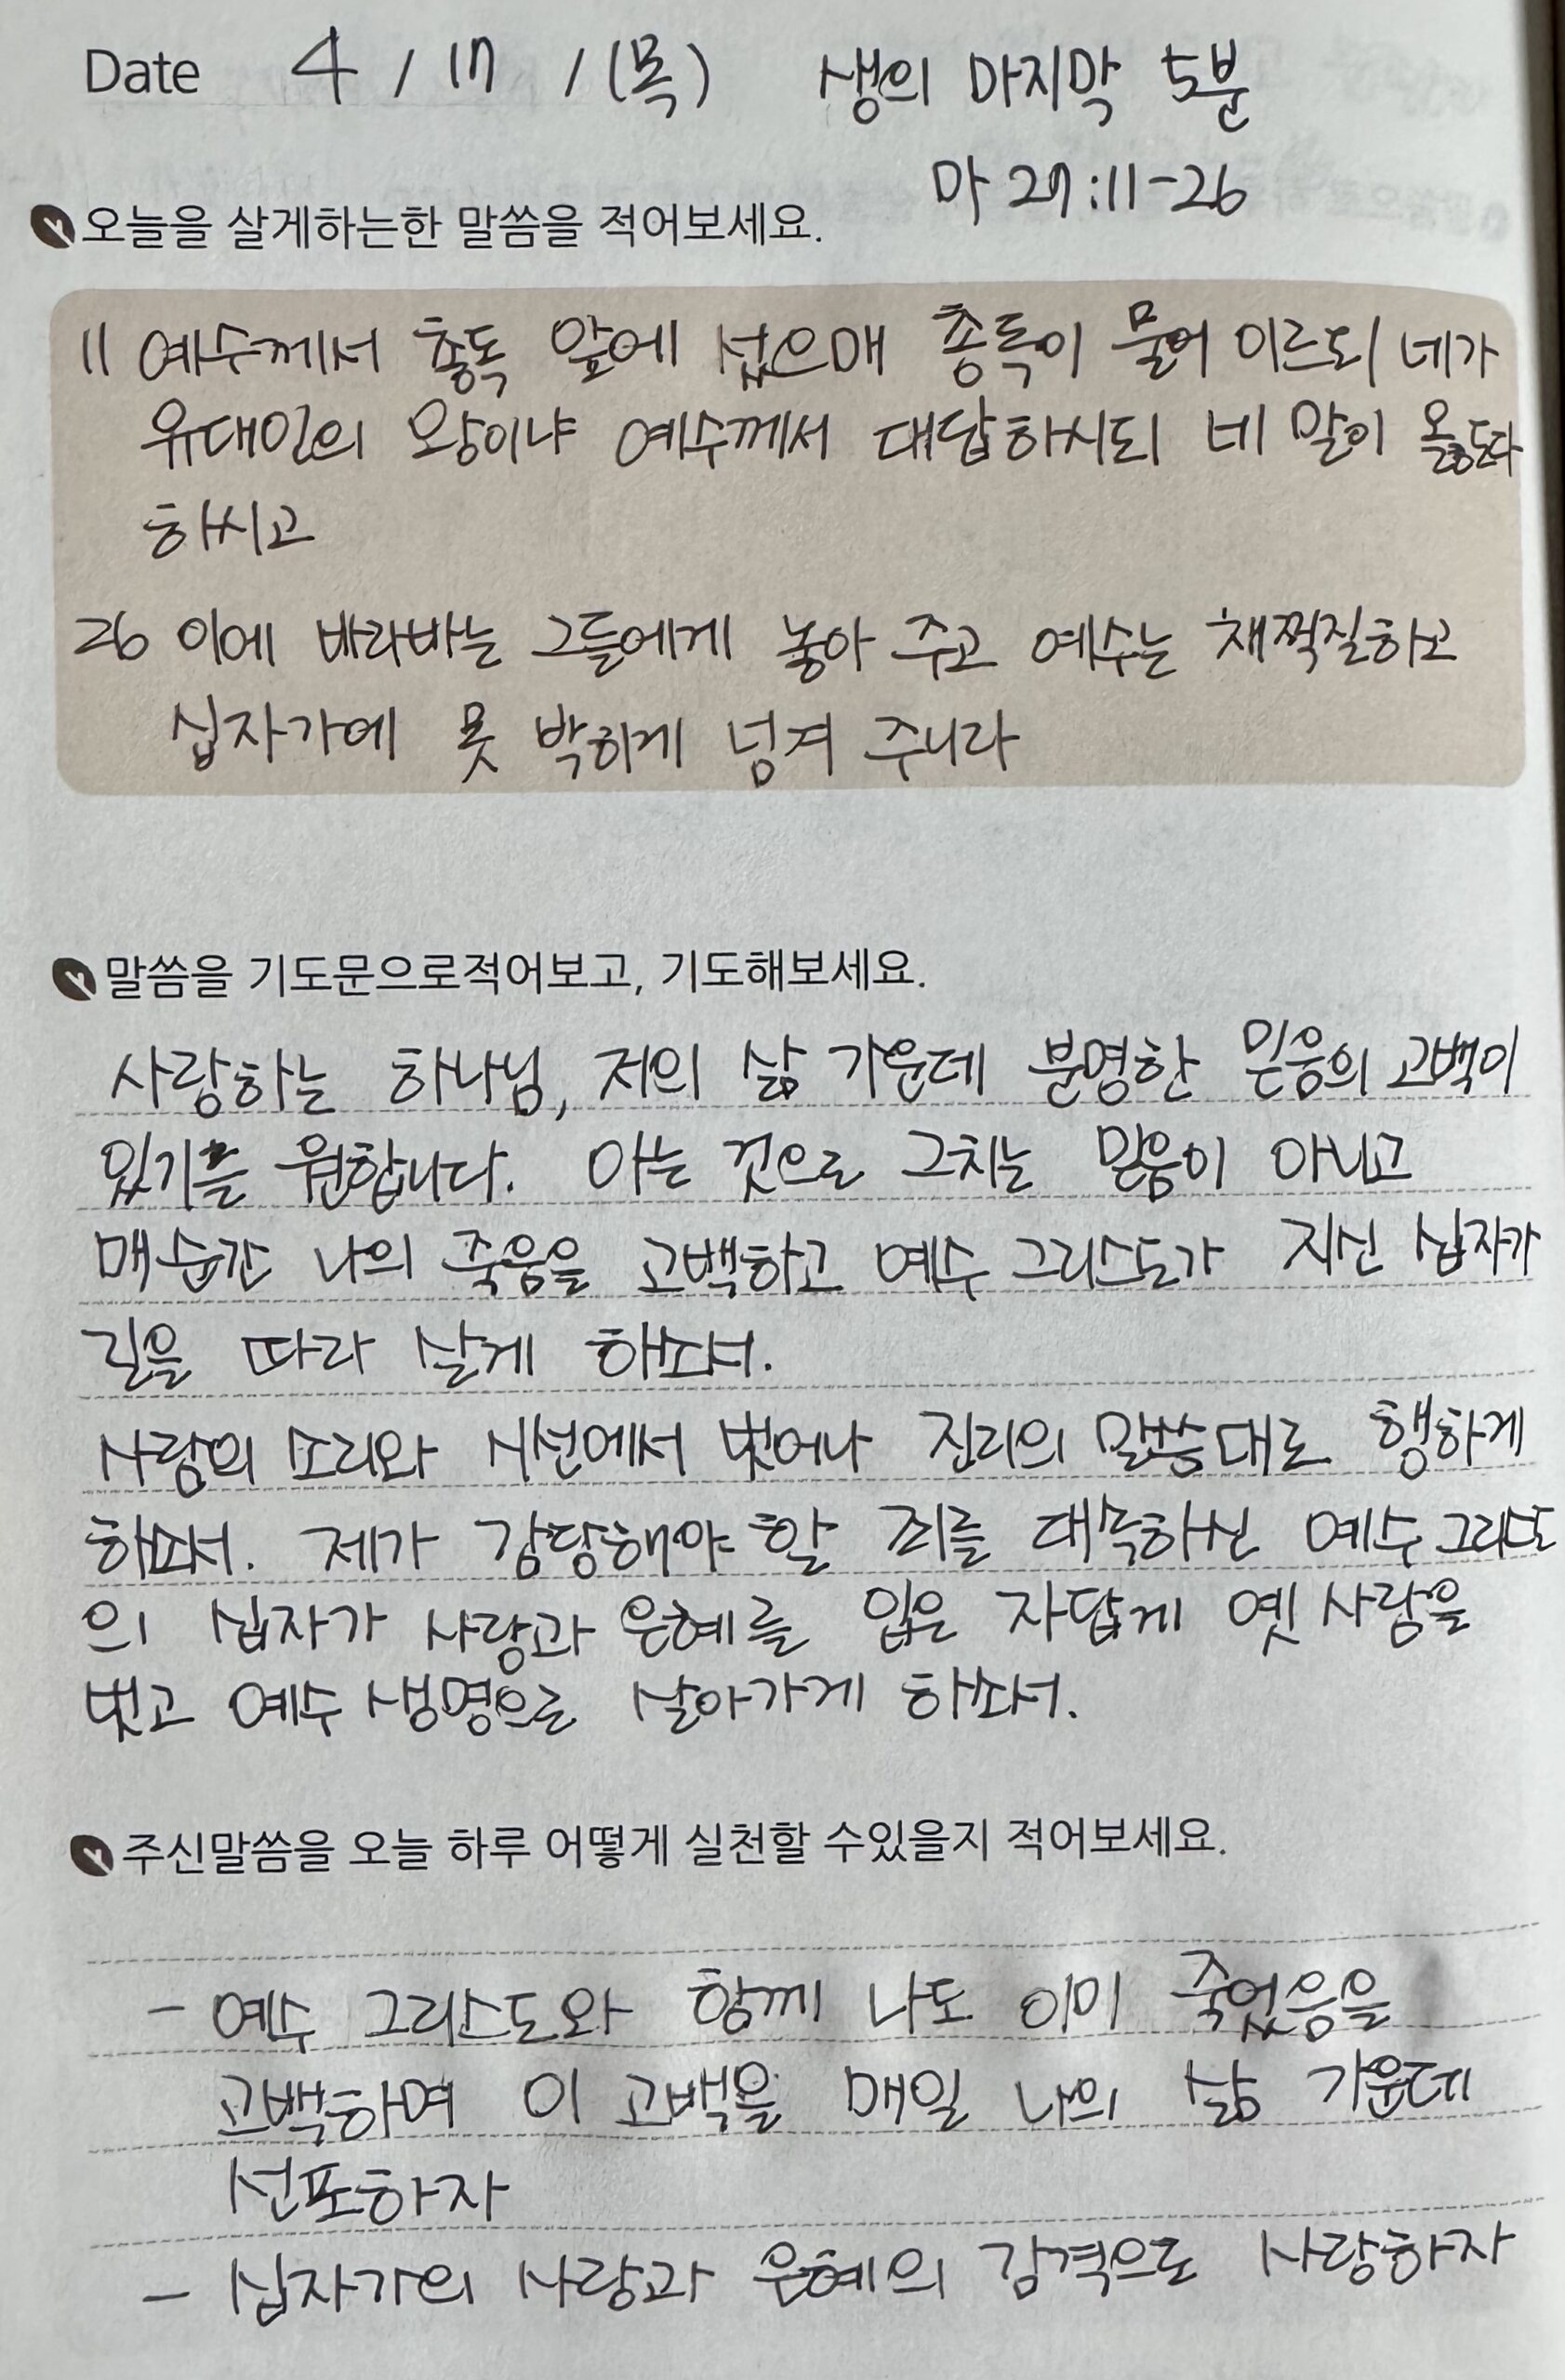 Date 4 / 17 / (목) 생의 마지막 5분
마 27:11-26
오늘을 살게하는한 말씀을 적어보세요.
11 예수께서 총독 앞에 섰으매 총독이 물어 이르되 네가
유대인의 왕이냐 예수께서 대답하시되 네 말이 옳도다
하시고
26 이에 바라바는 그들에게 놓아 주고 예수는 채찍질하고
십자가에 못 박히게 넘겨 주니라
말씀을 기도문으로적어보고, 기도해보세요.
사랑하는 하나님, 저의 삶 가운데 분명한 믿음의 고백이
있기를 원합니다. 아는 것으로 그치는 믿음이 아니고
매순간 나의 죽음을 고백하고 예수 그리스도가 지신 십자가
길을 따라 살게 하소서.
사람의 소리와 시선에서 벗어나 진리의 말씀대로 행하게
하소서. 제가 감당해야 할 죄를 대속하신 예수 그리스도
의 십자가 사랑과 은혜를 입은 자답게 옛 사람을
벗고 예수 생명으로 살아가게 하소서.
주신말씀을 오늘 하루 어떻게 실천할 수있을지 적어보세요.
- 예수 그리스도와 함께 나도 이미 죽었음을
고백하며 이 고백을 매일 나의 삶 가운데
선포하자
- 십자가의 사랑과 은혜의 감격으로 사랑하자